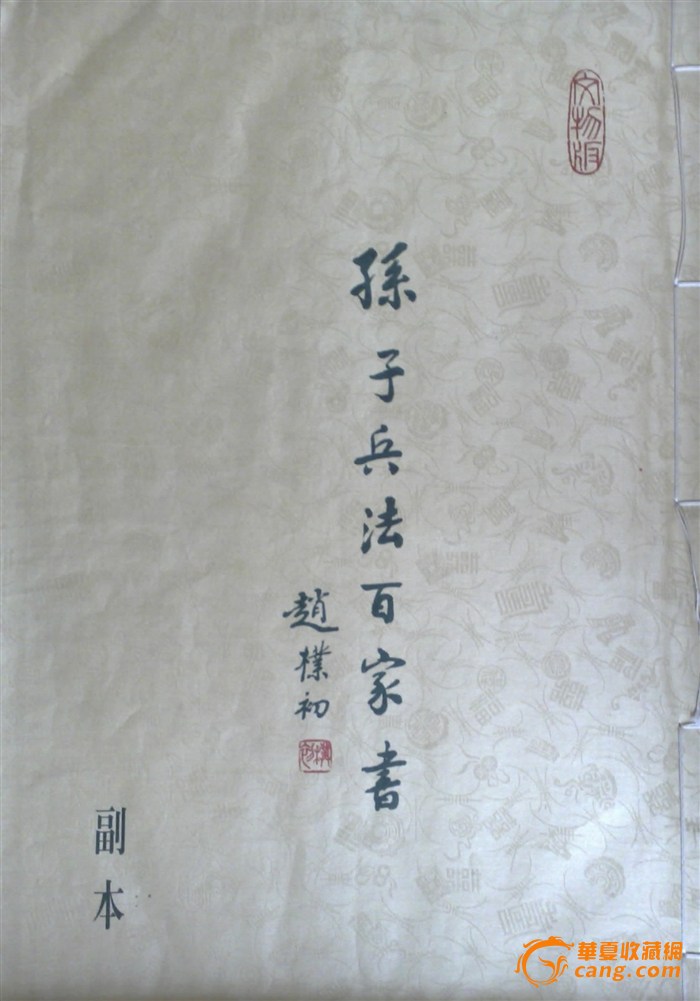 文物版
孫子兵法百家書
趙樸初
樸初
副本
華夏收藏網
cang.com